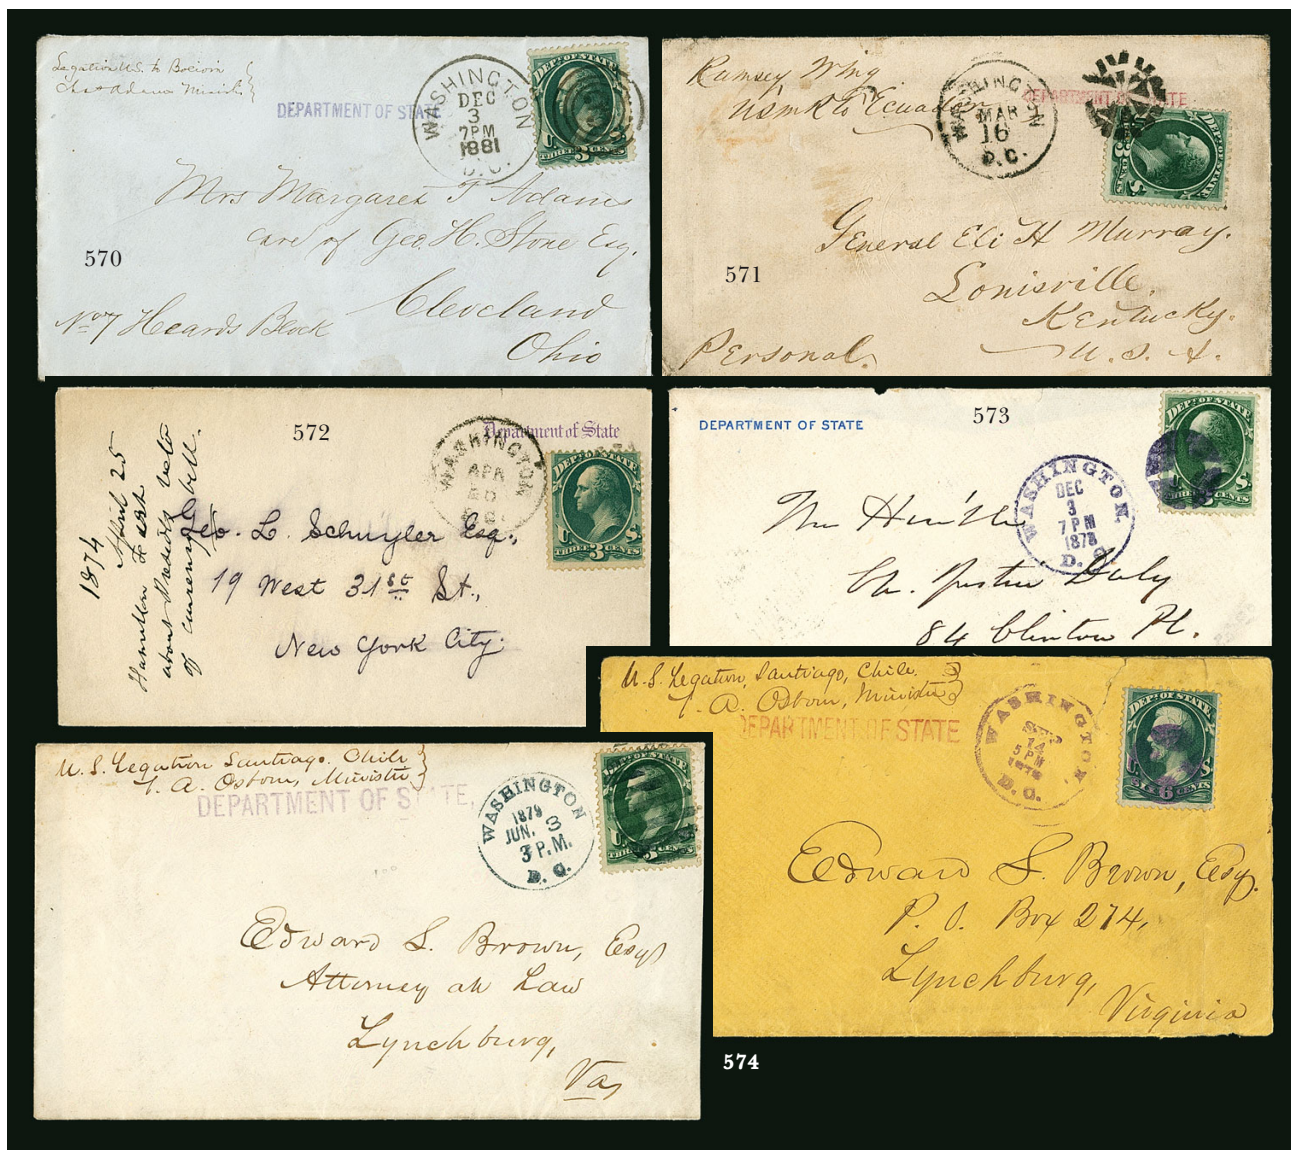 Legation U.S. to Bolivia
Chas Adams Minister
DEPARTMENT OF STATE
WASHINGTON
DEC
3
7PM
1881
D.C.
DEP'T OF STATE
U. S.
THREE 3 CENTS
Mrs Margaret T Adams
care of Geo. H. Stone Esq.
570
Cleveland
No 7 Heards Block
Ohio
Rumsey Wing
USMR to Ecuador
DEPARTMENT OF STATE
WASHINGTON
MAR
16
D.C.
DEP'T OF STATE
U. S.
THREE 3 CENTS
General Eli H Murray.
571
Louisville,
Kentucky.
Personal.
U. S. A.
572
Department of State
WASHINGTON
APR
DEP'T OF STATE
U. S.
THREE 3 CENTS
1874
April 25
Hamilton Fish
about Presidts veto
of currency bill.
Geo. L. Schuyler Esq.,
19 West 31st St.,
New York City.
DEPARTMENT OF STATE
573
WASHINGTON.
DEC
3
7 PM
1878
D. C.
DEP'T OF STATE
S.
THREE CENTS
Daly
84 Clinton Pl.
U.S. Legation, Santiago, Chile.
T. A. Osborn, Minister
DEPARTMENT OF STATE
WASHINGTON
14
5 PM
D. C.
DEP'T OF STATE
U. S.
SIX 6 CENTS
Edward S. Brown, Esq.
P. O. Box 274,
Lynchburg,
Virginia
U. S. Legation Santiago. Chile
T. A. Osborn, Minister
DEPARTMENT OF STATE,
WASHINGTON
1879
JUN. 3
3 P.M.
D. C.
DEP'T OF STATE
U. S.
THREE 3 CENTS
Edward S. Brown, Esq
Attorney at Law
Lynchburg,
Va,
574